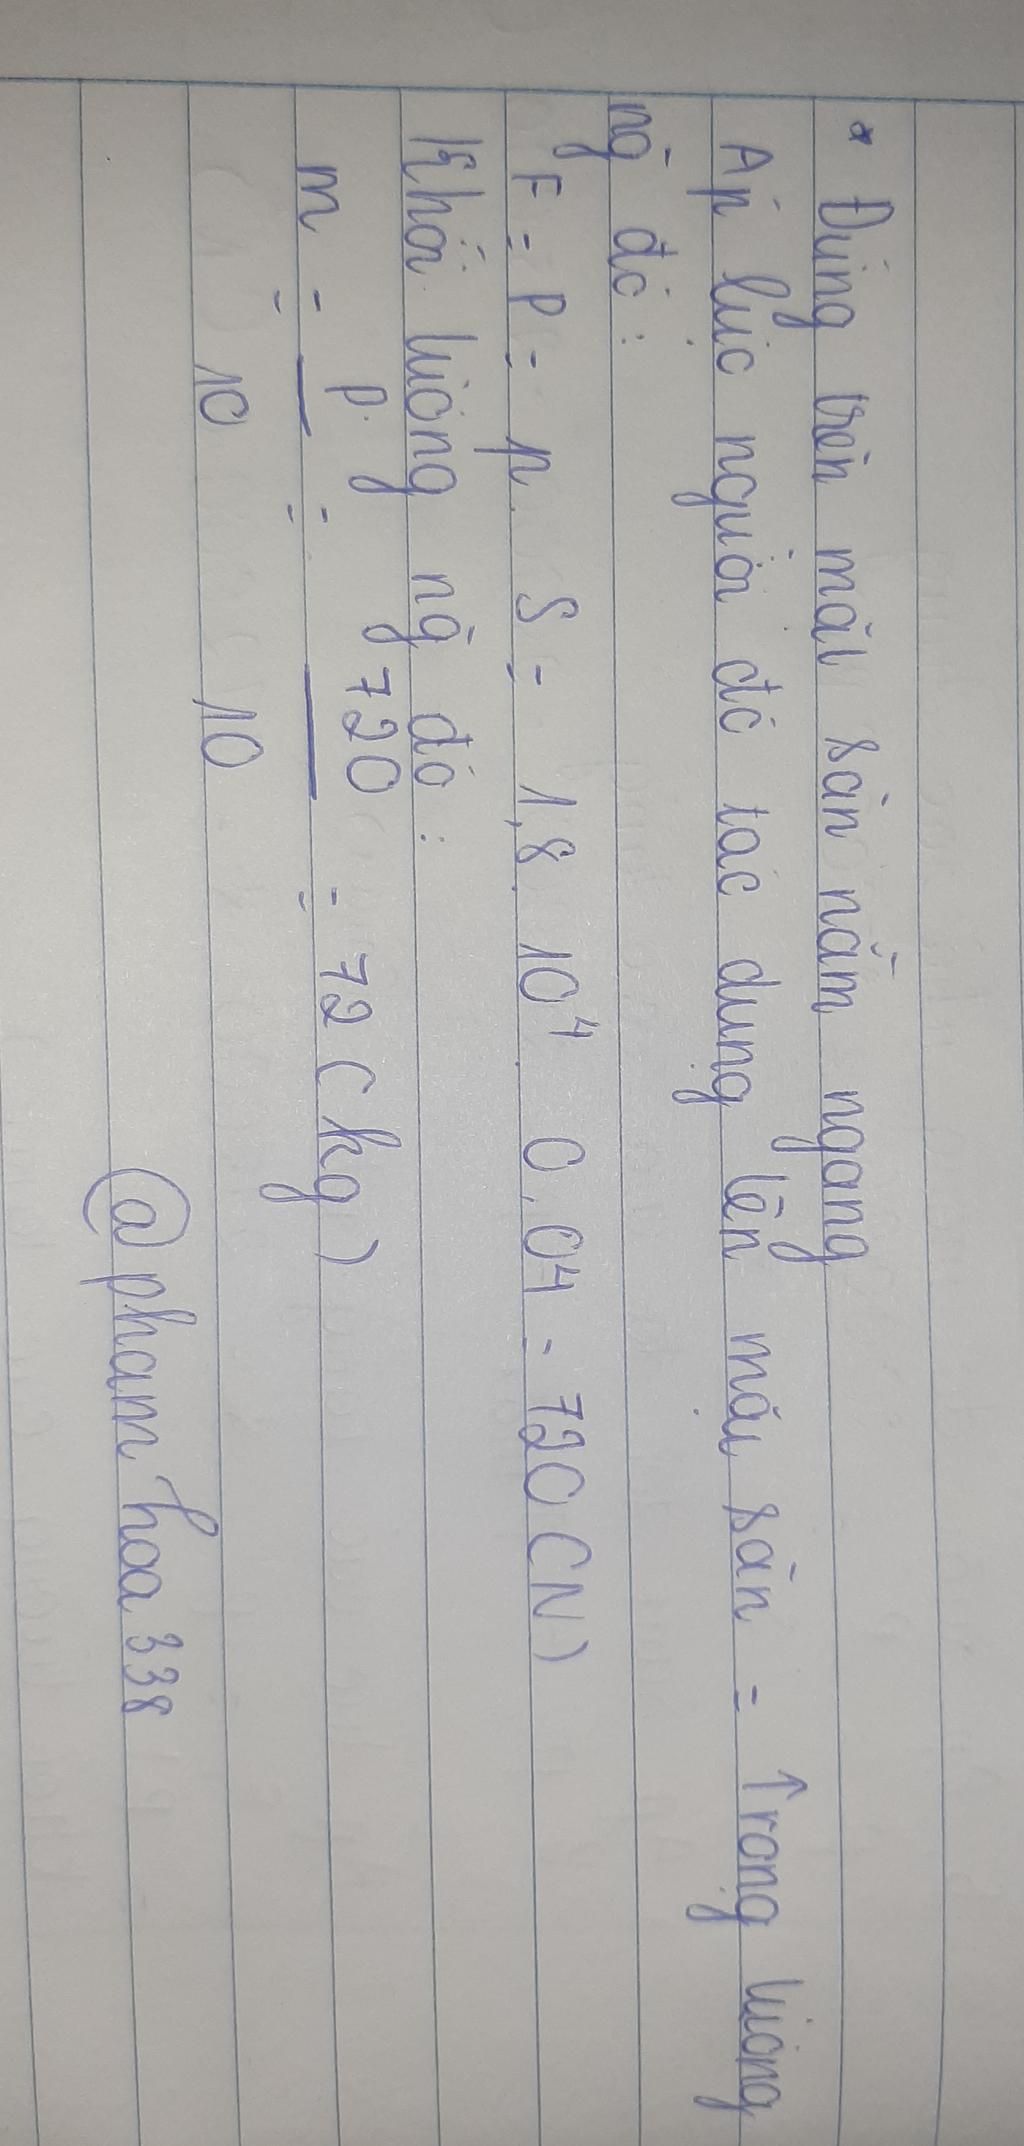 * Đứng trên mặt sàn nằm ngang
Áp lực người đó tác dụng lên mặt sàn = Trọng lượng
ng̀ đó :
F = P = p. S = 1,8. 10⁴. 0,04 = 720 (N)
Khối lượng ng̀ đó :
m = P / 10 = 720 / 10 = 72 (kg)
@pham hoa 338